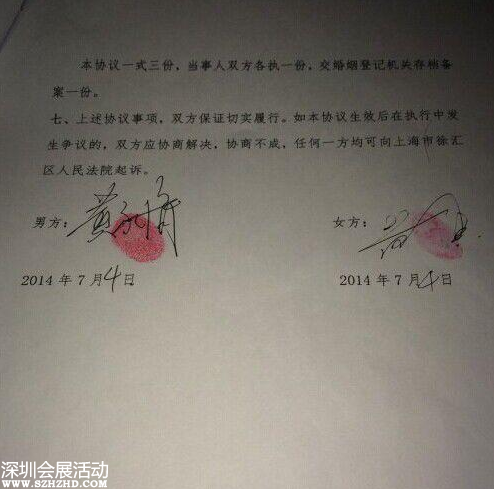 本协议一式三份，当事人双方各执一份，交婚姻登记机关存档备
案一份。
七、上述协议事项，双方保证切实履行。如本协议生效后在执行中发
生争议的，双方应协商解决，协商不成，任何一方均可向上海市徐汇
区人民法院起诉。
男方： 女方：
2014 年 7 月 4 日 2014 年 7 月 4 日
深圳会展活动
www.SZHZHD.COM